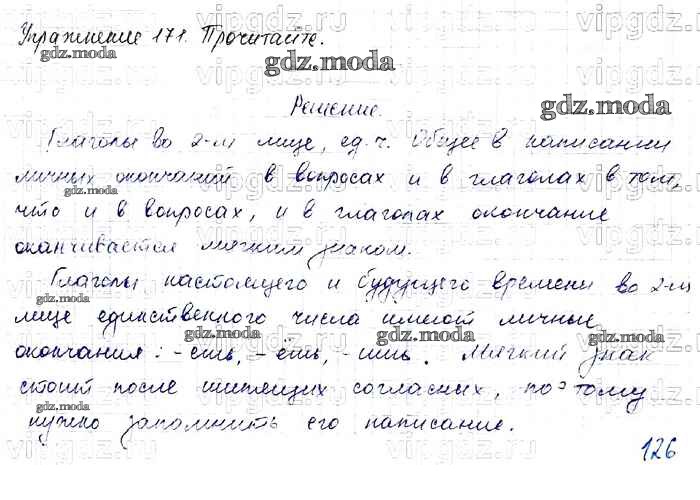 Упражнение 171. Прочитайте.
Решение.
Глаголы во 2-м лице, ед. ч. Общее в написании
личных окончаний в вопросах и в глаголах в том,
что и в вопросах, и в глаголах окончание
оканчивается мягким знаком.
Глаголы настоящего и будущего времени во 2-м
лице единственного числа имеют личные
окончания: -ешь, -ёшь, -ишь. Мягкий знак
стоит после шипящих согласных, поэтому
нужно запомнить его написание.
126
gdz.moda
vipgdz.ru